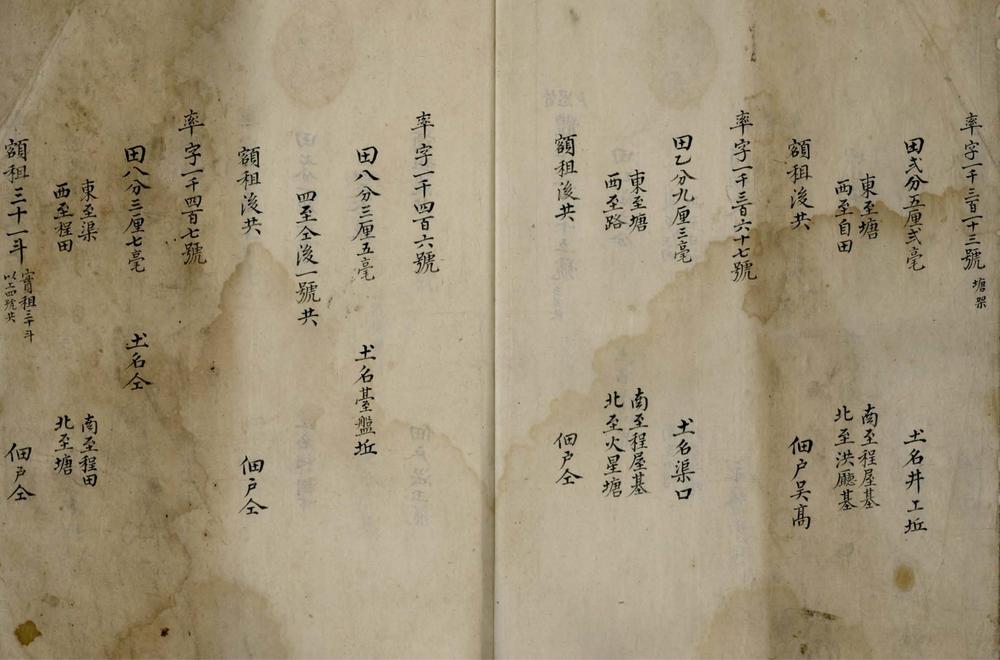 率字一千三百一十三號 塘器
田弍分五厘弍毫 土名井工坵
東至塘 南至程屋基
西至自田 北至洪廳基
額租後共 佃户吴高
率字一千三百六十七號
田乙分九厘三毫 土名渠口
東至塘 南至程屋基
西至路 北至火星塘
額租後共 佃户仝
率字一千四百六號
田八分三厘五毫 土名基盤坵
四至仝後一號共
額租後共 佃户仝
率字一千四百七號
田八分三厘七毫 土名仝
東至渠 南至程田
西至程田 北至塘
額租三十一斗 實租三十斗 以上四號共 佃户仝